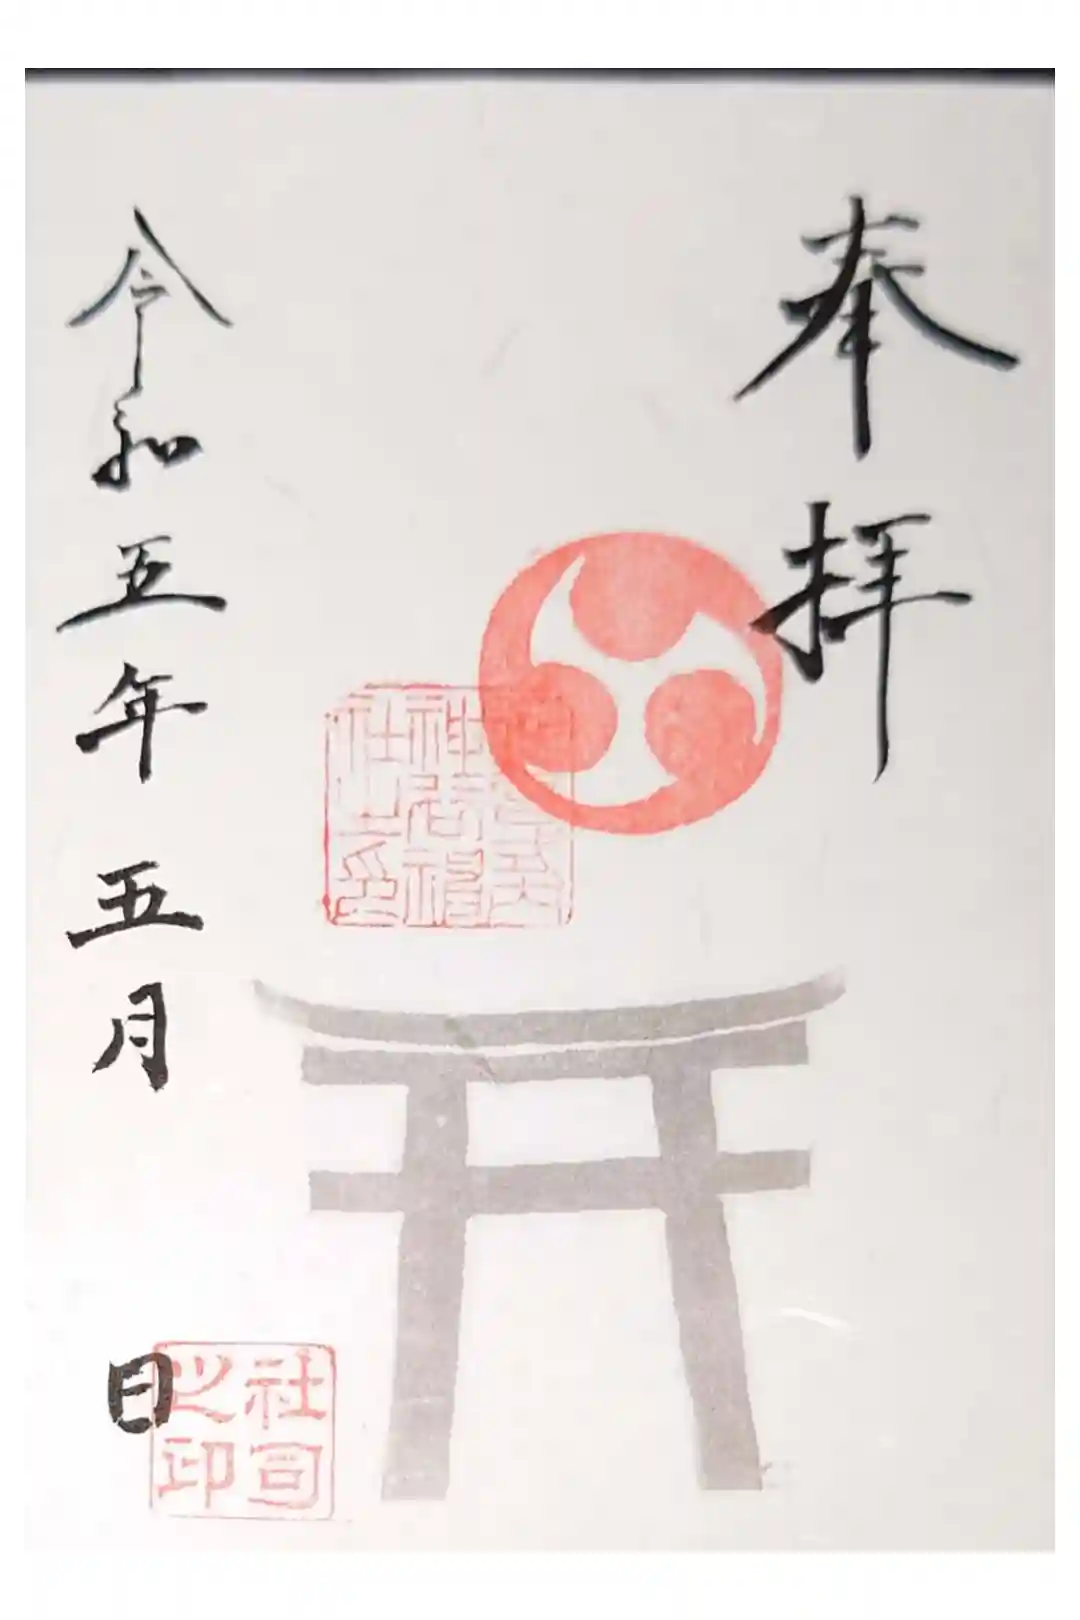 奉拝
令和五年 五月 日
社司
之印